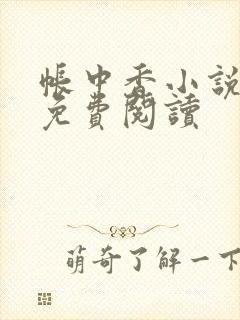 帳中香小說
免費閱讀
萌奇了解一下